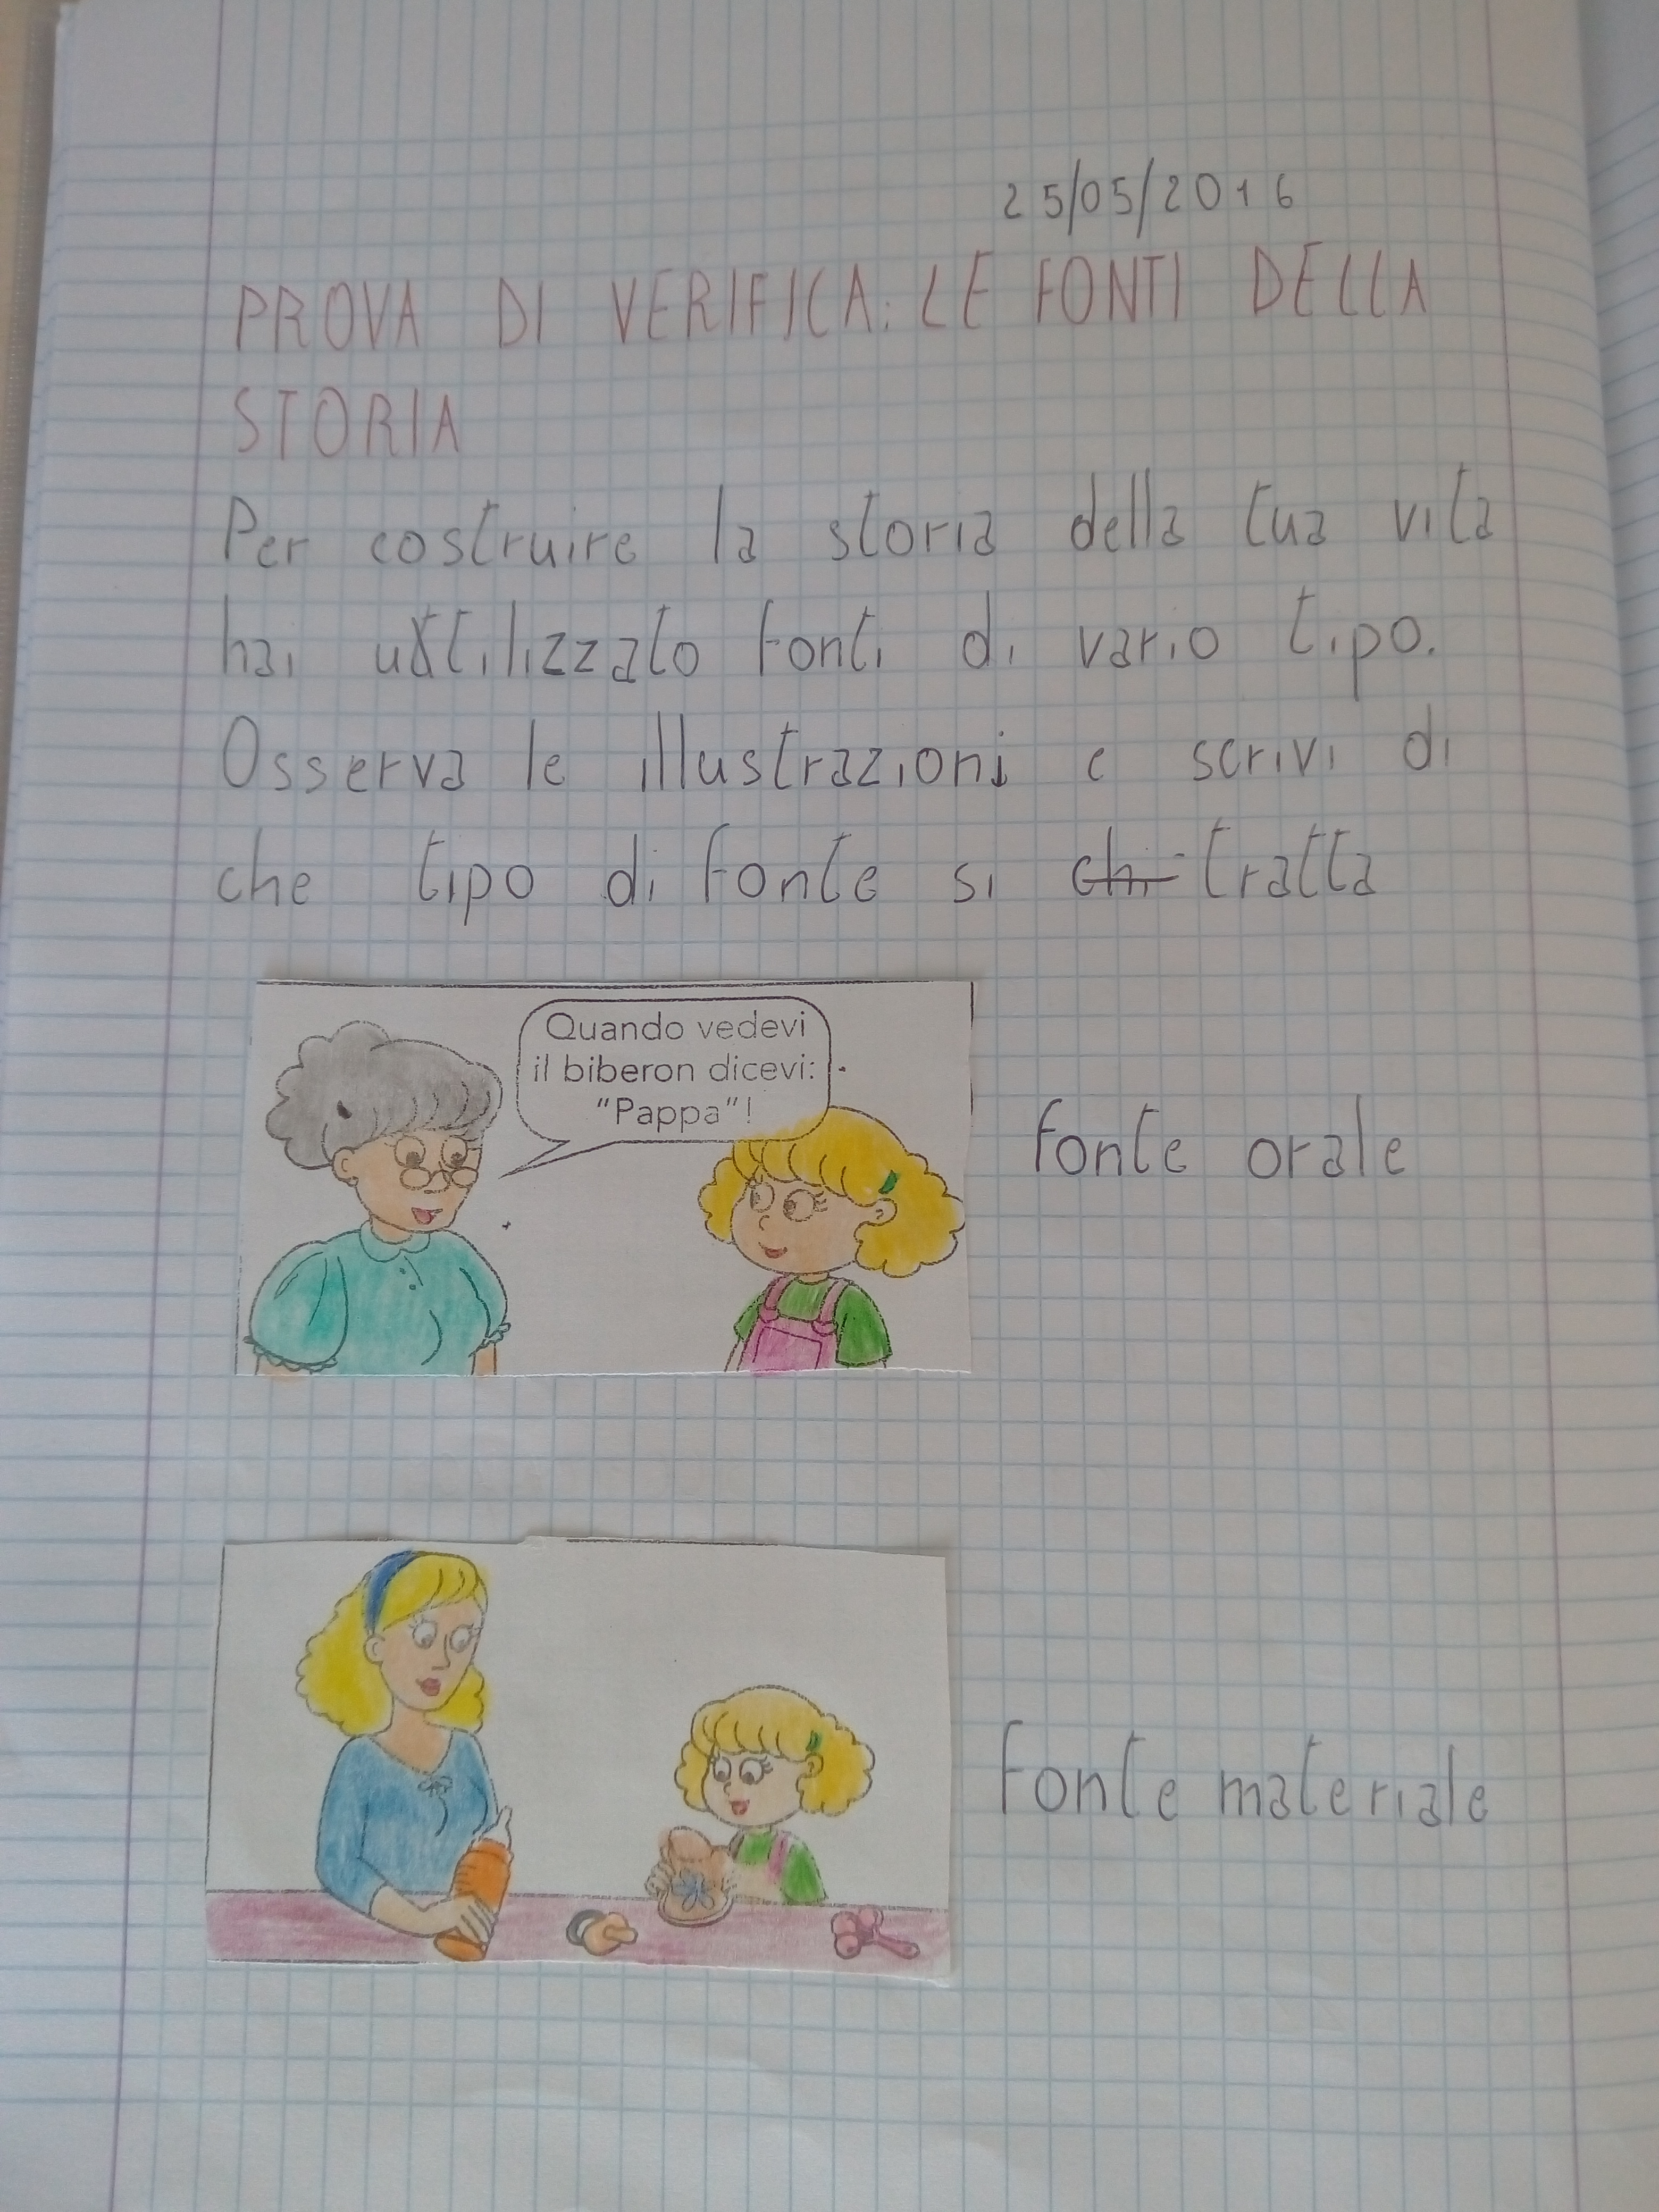 25/05/2016
PROVA DI VERIFICA: LE FONTI DELLA
STORIA
Per costruire la storia della tua vita
hai utilizzato fonti di vario tipo.
Osserva le illustrazioni e scrivi di
che tipo di fonte si chi tratta
Quando vedevi
il biberon dicevi:
"Pappa"!
fonte orale
fonte materiale